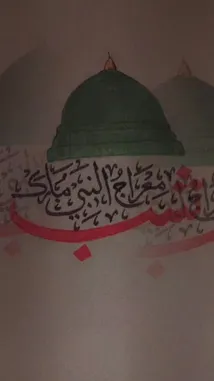 معراج النبی مبارک
شب